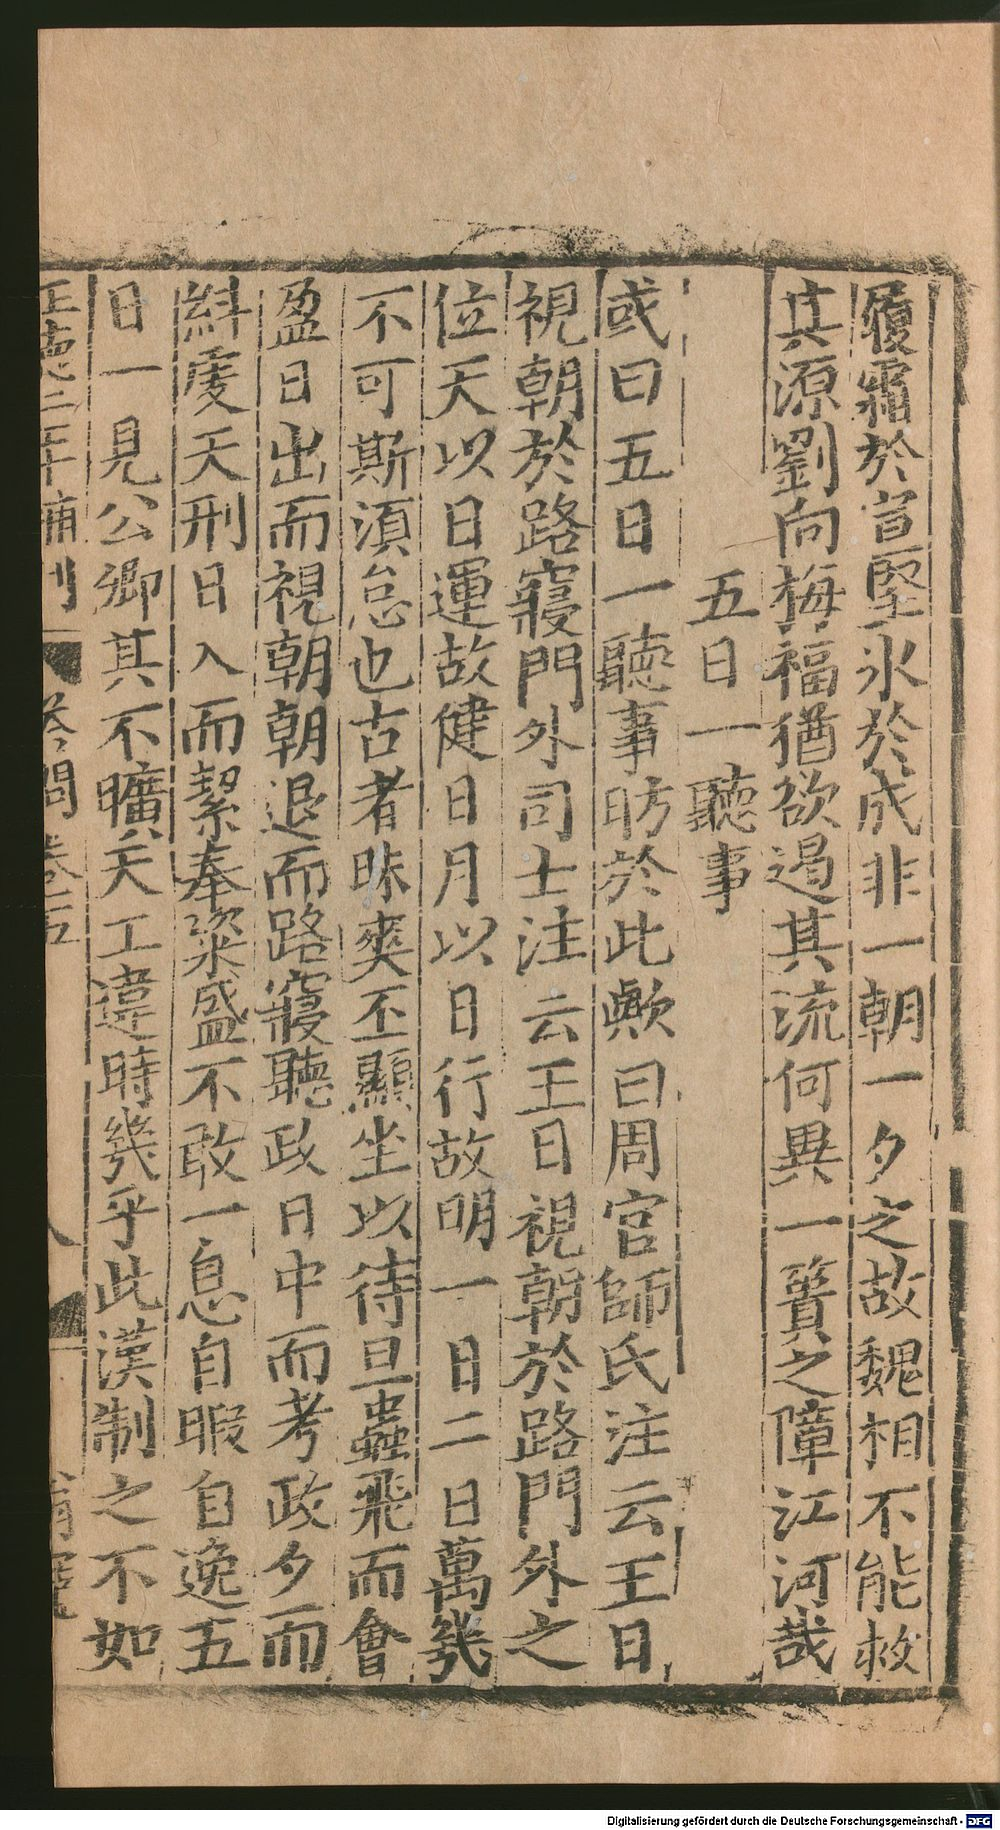 履霜於宣堅氷於成非一朝一夕之故魏相不能救
其源劉向梅福猶欲遏其流何異一簣之障江河哉
五日一聽事
或曰五日一聽事昉於此歟曰周官師氏注云王日
視朝於路寢門外司士注云王日視朝於路門外之
位天以日運故健日月以日行故明一日二日萬幾
不可斯須怠也古者昧爽丕顯坐以待旦蟲飛而會
盈日出而視朝朝退而路寢聽政日中而考政夕而
糾虔天刑日入而絜奉粢盛不敢一息自暇自逸五
日一見公卿其不曠天工違時幾乎此漢制之不如
正德二年補刊
答問卷五
Digitalisierung gefördert durch die Deutsche Forschungsgemeinschaft - DFG